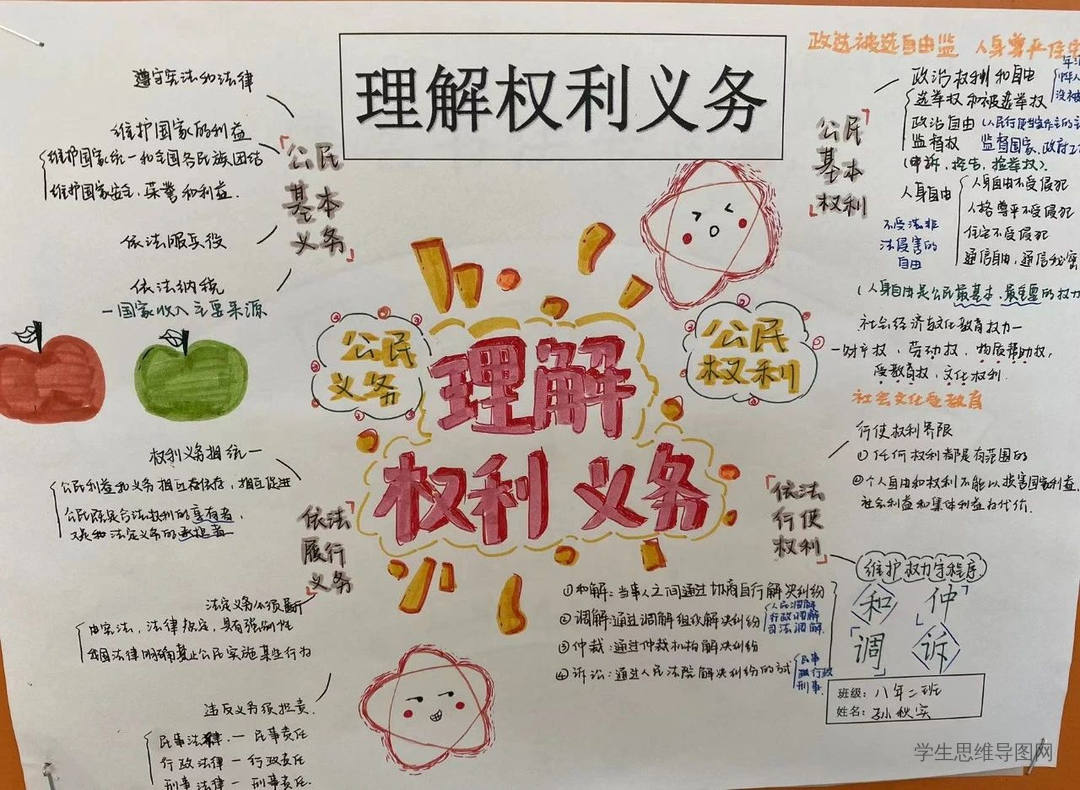 理解权利义务
遵守宪法和法律
维护国家的利益
维护国家统一和全国各民族团结
维护国家安全、荣誉和利益.
依法服兵役
依法纳税
一国家收入主要来源
「公民
基本
义务」
公民
义务
理解
权利义务
公民
权利
政选被选自由监 人身尊严住宅
「公民
基本
权利」
政治权利和自由
选举权和被选举权
政治自由
监督权 监督国家、政府工
(申诉、控告、检举权).
人身自由
人身自由不受侵犯
人格尊严不受侵犯
住宅不受侵犯
通信自由,通信秘密
不受法非
法侵害的
自由
(人身自由是公民最基本、最重要的权力
社会经济与文化教育权力一
一财产权、劳动权、物质帮助权,
受教育权、文化权利.
社会文化受教育
「依法
行使
权利」
行使权利界限
①任何权利都是有范围的
②个人自由和权利不能以损害国家利益,
社会利益和集体利益为代价.
维护权力守程序
和 仲
调 诉
①和解:当事人之间通过协商自行解决纠纷
②调解:通过调解组织解决纠纷
人民调解
行政调解
司法调解
③仲裁:通过仲裁机构解决纠纷
④诉讼:通过人民法院解决纠纷的
民事
行政
刑事
班级:八年二班
姓名:孙秋实
「依法
履行
义务」
权利义务相统一
公民利益和义务相互依存,相互促进
公民既是合法权利的享有者,
又是和法定义务的承担者
法定义务必须履行
由宪法,法律规定,具有强制性
我国法律明确禁止公民实施某些行为
违反义务须担责.
民事法律.一 民事责任
行政法律一 行政责任
刑事法律一 刑事责任.
学生思维导图网